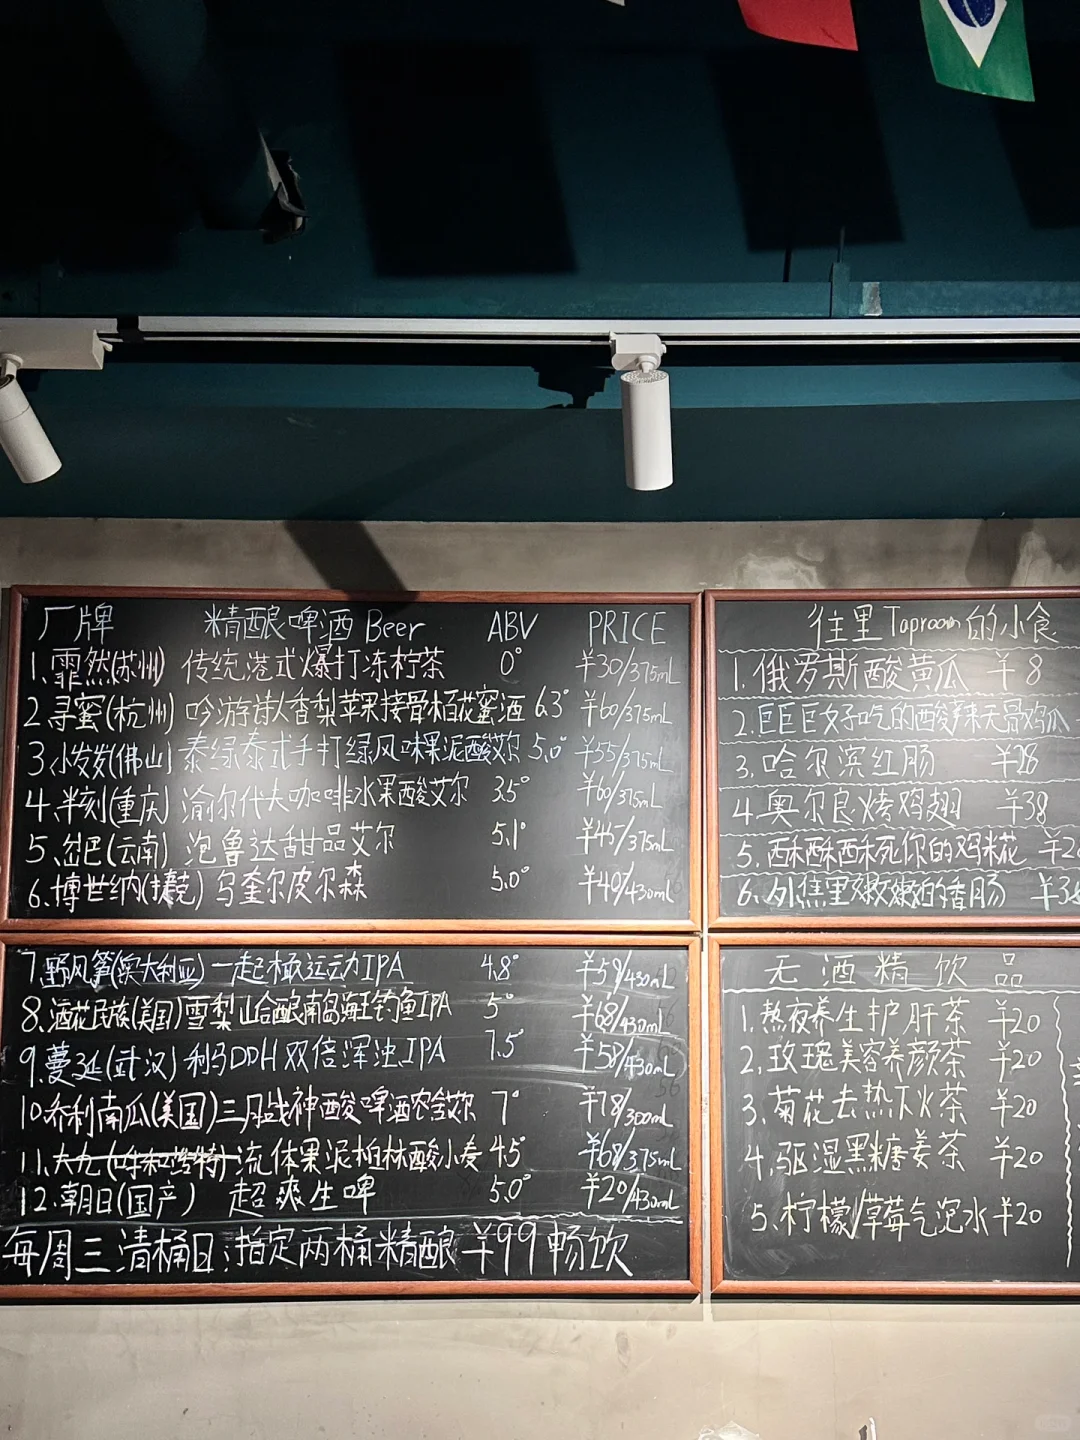 厂牌 精酿啤酒 Beer ABV PRICE
1.霏然(苏州) 传统港式爆打冻柠茶 0° ¥30/375mL
2.寻蜜(杭州) 吟游诗人香梨苹果接骨木柏花蜜酒 6.3° ¥60/375mL
3.小发发(佛山) 泰绿泰式手打绿风味果泥酸艾尔 5.0° ¥55/375mL
4.半刻(重庆) 渝尔代夫咖啡水果酸艾尔 3.5° ¥60/375mL
5.岔巴(云南) 泡鲁达甜品艾尔 5.1° ¥45/375mL
6.博世纳(捷克) 乌奎尔皮尔森 5.0° ¥40/430mL
7.野风筝(澳大利亚) 一起橄运动IPA 4.8° ¥59/430mL
8.酒花民族(美国)雪梨山合酿南岛海王钓鱼IPA 5° ¥68/430mL
9.蔓延(武汉) 利马DDH双倍浑浊IPA 7.5° ¥58/430mL
10.布利南瓜(美国)三月战神酸啤酒农舍艾尔 7° ¥78/300mL
11. 流体果泥柏林酸小麦 4.5° ¥68/375mL
12.朝日(国产) 超爽生啤 5.0° ¥20/430mL
每周三清桶日:指定两桶精酿¥99畅饮
往里Taproom的小食
1.俄罗斯酸黄瓜 ¥8
2.巨巨巨好吃的酸辣无骨鸡爪
3.哈尔滨红肠 ¥28
4.奥尔良烤鸡翅 ¥38
5.酥酥酥死你的鸡米花
6.外焦里嫩嫩的香肠
无酒精饮品
1.熬夜养生护肝茶 ¥20
2.玫瑰美容养颜茶 ¥20
3.菊花去热下火茶 ¥20
4.驱湿黑糖姜茶 ¥20
5.柠檬/草莓气泡水¥20